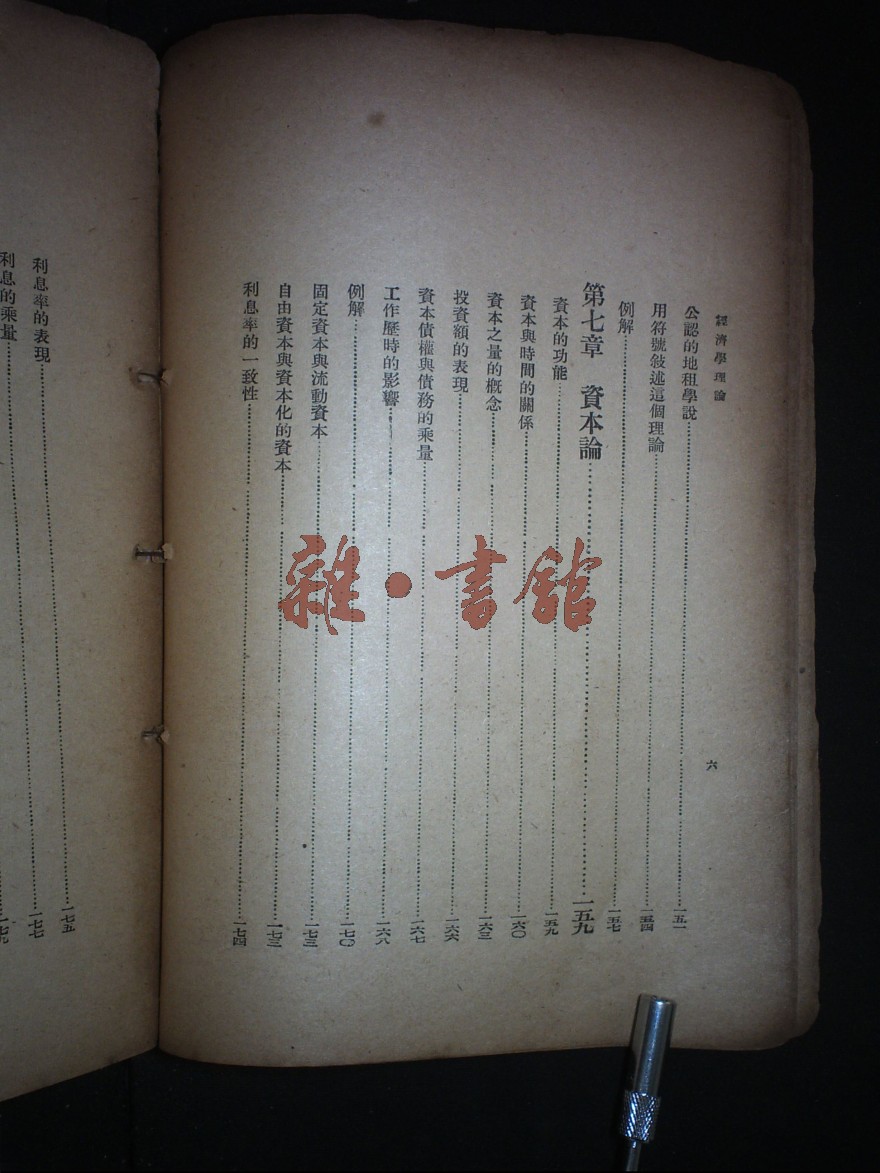 經濟學理論
六
公認的地租學說……一五一
用符號敍述這個理論……一五四
例解……一五七
第七章 資本論……一五九
資本的功能……一五九
資本與時間的關係……一六〇
資本之量的概念……一六三
投資額的表現……一六六
資本債權與債務的乘量……一六七
工作歷時的影響……一六八
例解……一七〇
固定資本與流動資本……一七三
自由資本與資本化的資本……一七三
利息率的一致性……一七四
利息率的表現
利息的乘量
一七五
一七七
一七九
雜•書館